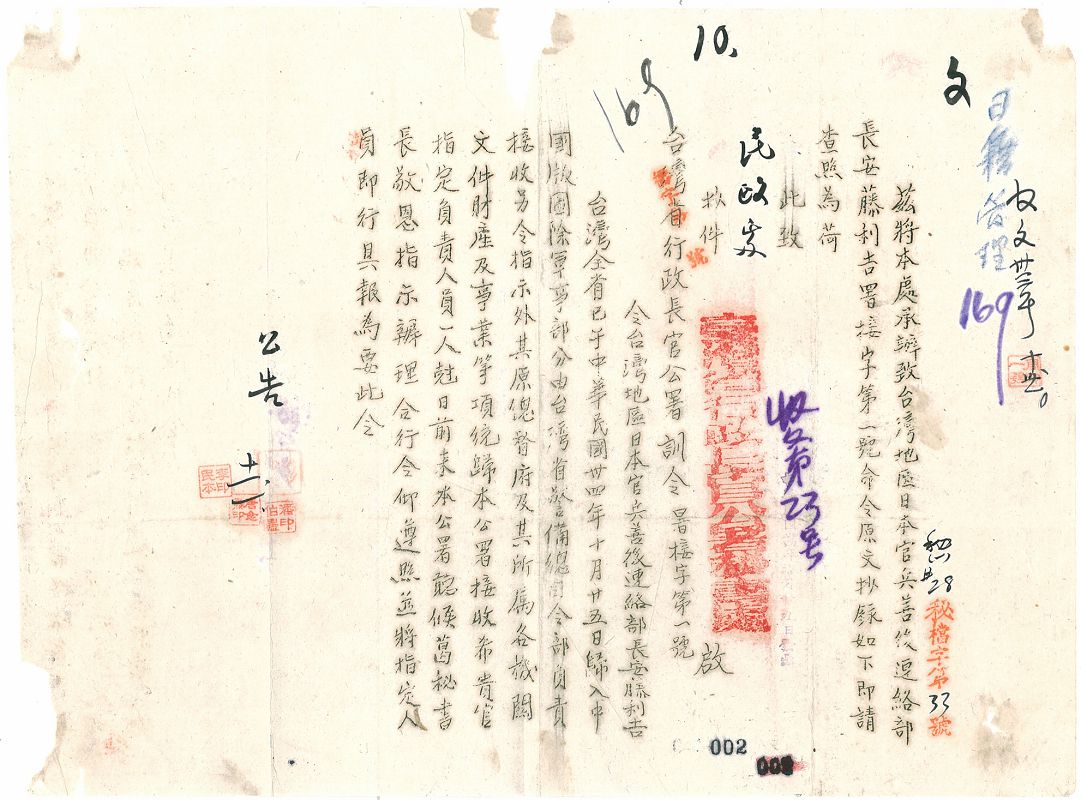 10.
169
文
日僑管理
169
收文卅一年
秘 28
秘檔字第33號
茲將本處承辦致台灣地區日本官兵善後連絡部
長安藤利吉署接字第一號命令原文抄錄如下即請
查照為荷
此致
民政處
收文第23号
啟
台灣省行政長官公署訓令 署接字第一號
令台灣地區日本官兵善後連絡部長安藤利吉
台灣全省已于中華民國卅四年十月廿五日歸入中
國版圖除軍事部分由台灣省警備總司令部負責
接收另令指示外其原總督府及其所屬各機關
文件財產及事業等項統歸本公署接收希貴官
指定負責人員一人尅日前來本公署聽候葛秘書
長敬恩指示辦理合行令仰遵照並將指定人
員即行具報為要此令
公告
002